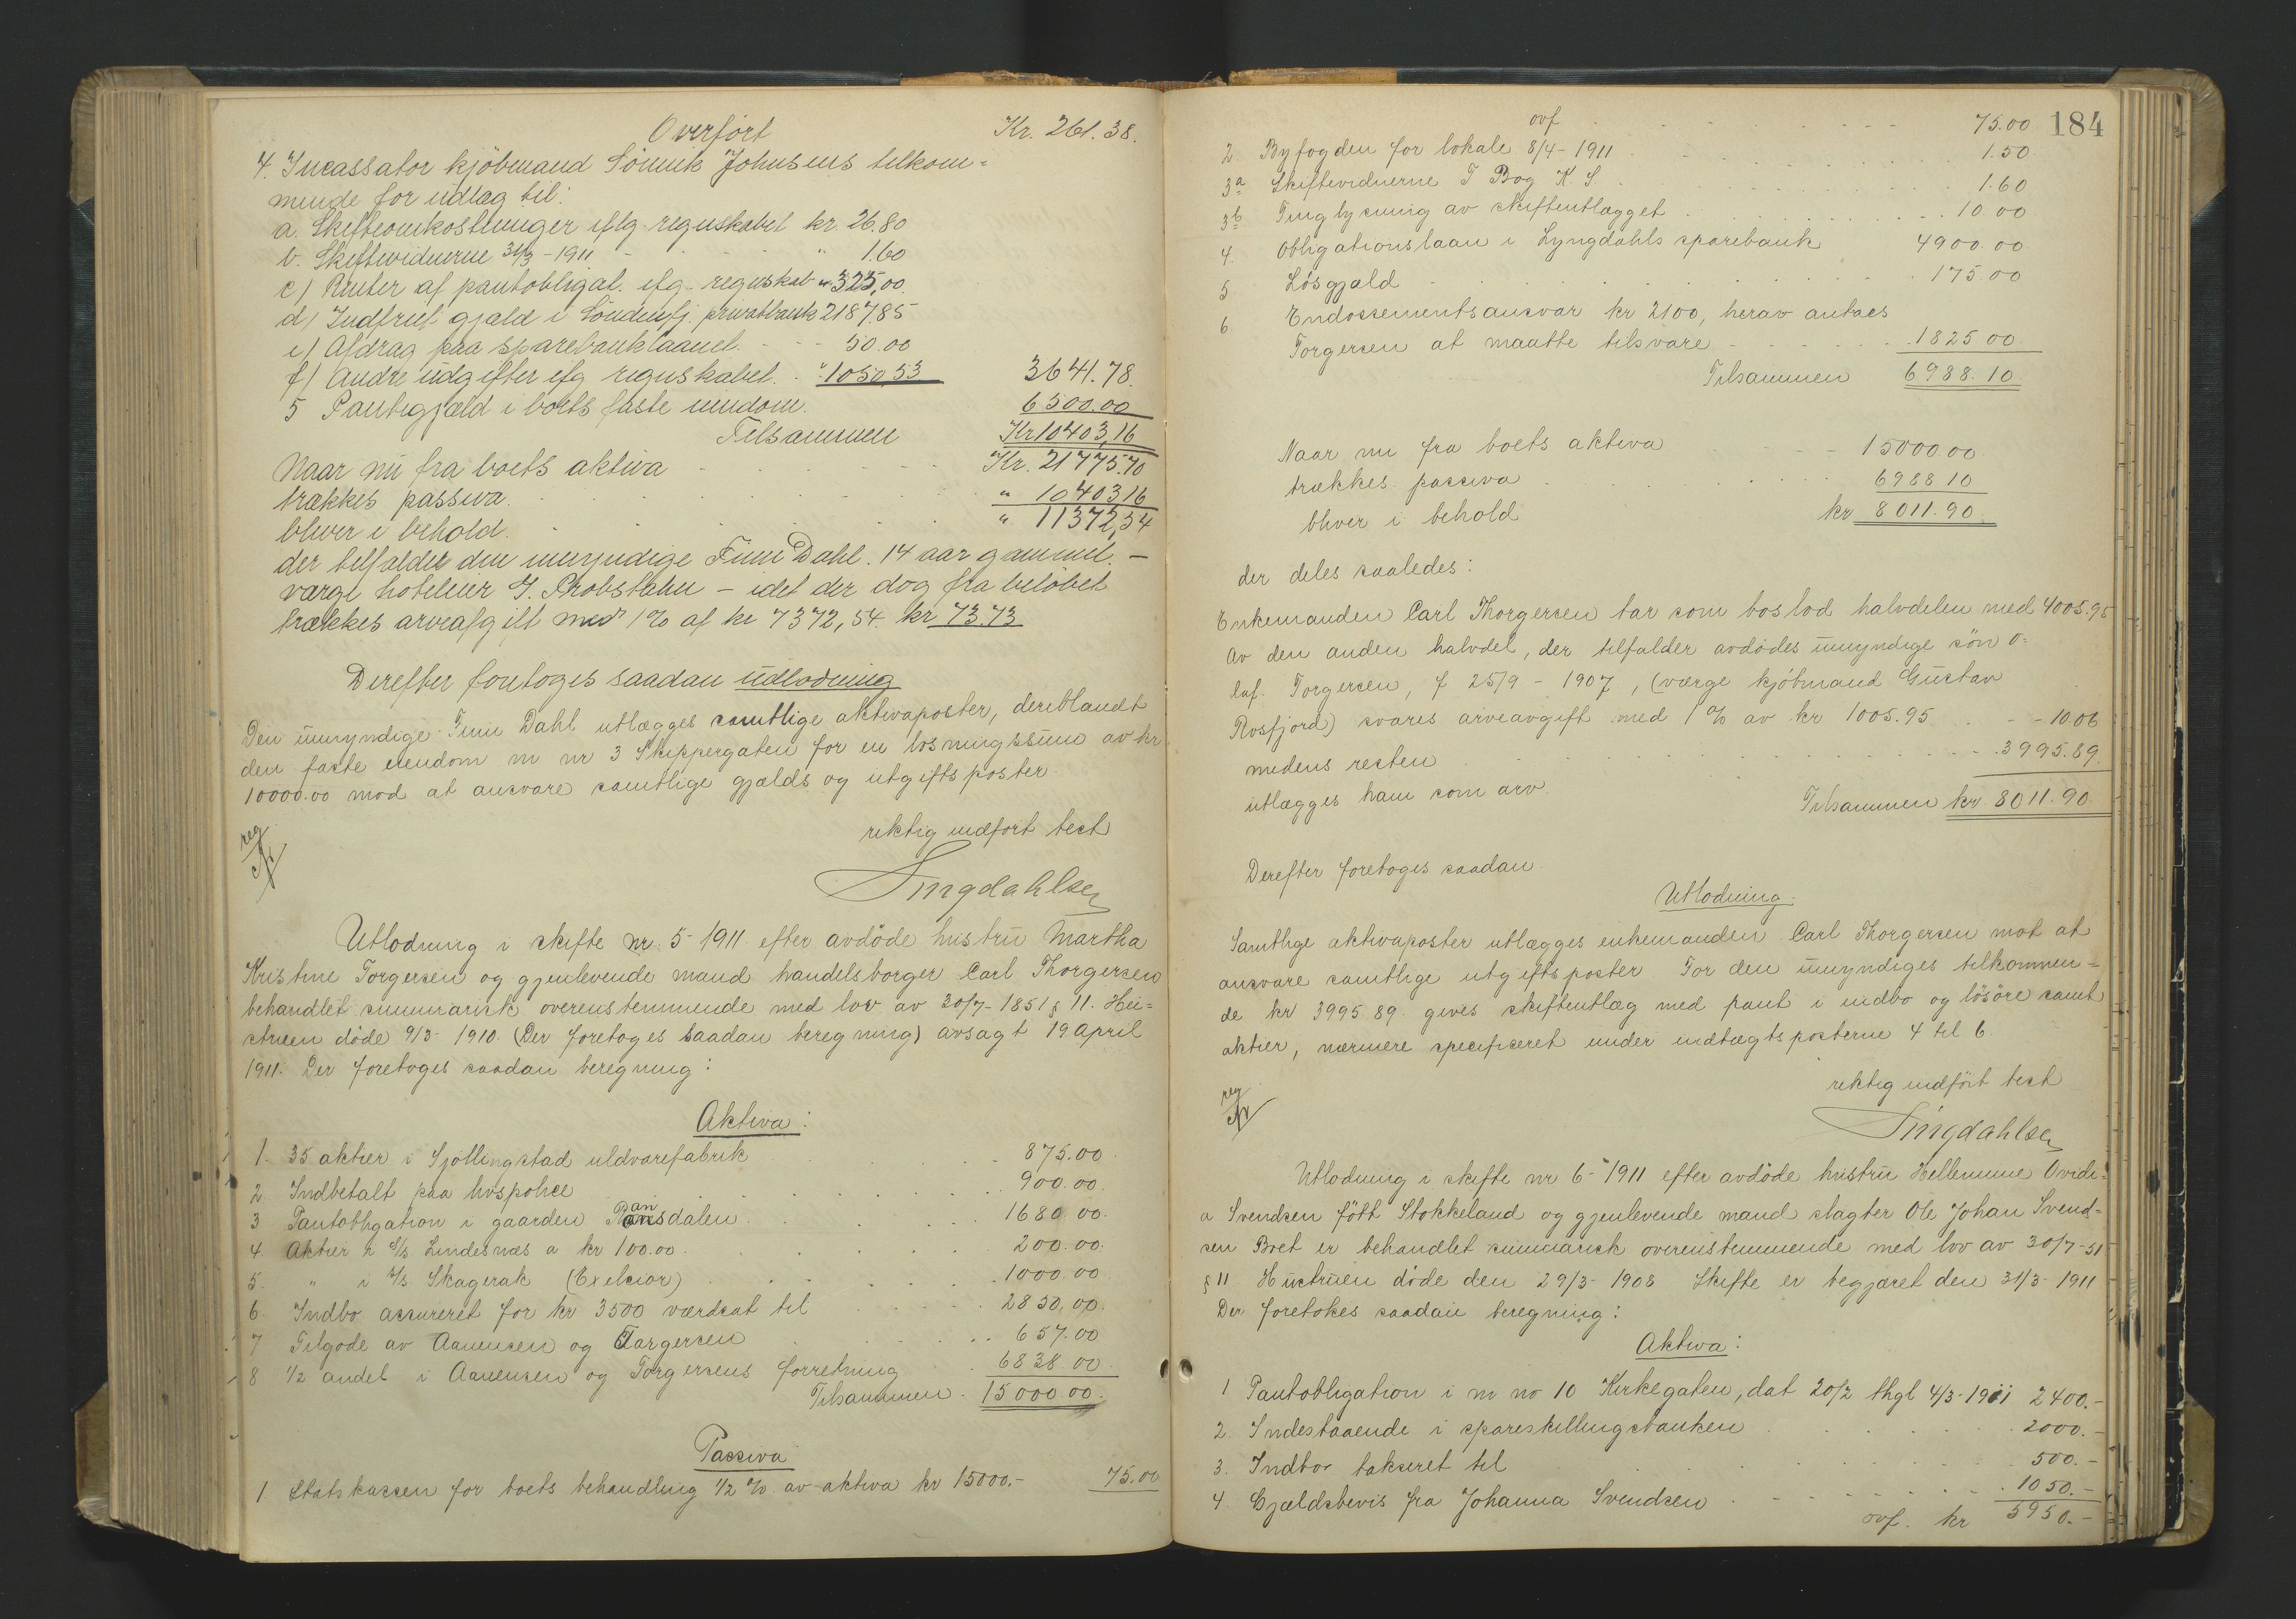 Overført Kr. 261.38.
4. Incassator kjöbmand Sömik Johnsens tilkom=
mende for udlæg til:
a. Skifteomkostninger iflg. regnskabet kr. 26.80
b. Skiftevidnerne 31/3-1911 - " 1.60
c) Renter af pantobligat. efg. regnskab " 325,00.
d) Indfriet gjæld i Söndenfj. privatbank 2187.85
e) Afdrag paa sparebanklaanet. - - - 50.00
f) Andre udgifter efg regnskabet. " 1050,53 3641.78.
5 Pantegjæld i boets faste eiendom. 6500.00
Tilsammen Kr 10403,16
Naar nu fra boets aktiva Kr. 21775.70
trækkes passiva. " 10403 16
bliver i behold. " 11372,54
der tilfalder den umyndige Finn Dahl. 14 aar gammel. -
værge hoteleier J. Probstahn - idet der dog fra beløbet
trækkes arveafgift med 1% af kr 7372,54. kr 73.73
Derefter foretoges saadan udlodning
Den umyndige Finn Dahl utlægges samtlige aktivaposter, deriblandt
den faste eiendom m nr 3 Skippergaten for en løsningssum av kr
10000.00 mod at ansvare samtlige gjælds og utgiftsposter.
reg
rektig indfört test
Lingdahlsen
Utlodning i skifte nr. 5-1911 efter avdöde hustru Martha
Kristine Torgersen og gjenlevende mand handelsborger Carl Thorgersen
behandlet summarisk overensstemmende med lov av 30/7-1851 § 11. Hu=
struen döde 9/3 1910. (Der foretoges saadan beregning) avsagt 19 April
1911. Der foretoges saadan beregning:
Aktiva:
1. 35 aktier i Sjöllingstad uldvarefabrik 875.00
2 Indbetalt paa livspolice 900.00.
3 Pantobligation i gaarden Ransdalen 1680.00.
4. Aktier i A/S Lindesnæs a kr 100.00. 200.00.
5. " i A/S Skagerak (Exelsior) 1000.00
6. Indbo assureret for kr 3500 værdsat til 2850,00.
7 Tilgode av Aanensen og Torgersen 657.00
8 1/2 andel i Aanensen og Torgersens forretning 6838.00
Tilsammen 15000 00.
Passiva
1 Statskassen for boets behandling 1/2 % av aktiva kr 15000.- 75.00
184
ovf 75.00
2 Byfogden for lokale 8/4-1911 1.50
3a Skiftevidnerne T Bog K S 1.60
3b Tinglysning av skifteutlægget 10 00
4. Obligationslaan i Lyngdahls sparebank 4900.00
5 Lösgjæld 175.00
6. Endossementsansvar kr 2100, herav antaes
Torgersen at maatte tilsvare 1825 00.
Tilsammen 6988.10
Naar nu fra boets aktiva 15000.00
trækkes passiva 6988.10
bliver i behold kr 8011.90.
der deles saaledes:
Enkemanden Carl Thorgersen tar som boslod halvdelen med 4005.95
Av den anden halvdel, der tilfalder avdödes umyndige sön O=
laf. Torgersen, f 25/9-1907, (værge kjöbmand Gustav
Rosfjord) svares arveavgift med 1 % av kr 1005.95 10.06
medens resten 3995.89.
utlægges ham som arv
Tilsammen kr 8011.90
Derefter foretoges saadan
Utlodning.
Samtlige aktivaposter utlægges enkemanden Carl Thorgersen mot at
ansvare samtlige utgiftsposter For den umyndiges tilkommen=
de kr 3995 89. gives skifteutlæg med pant i indbo og lösöre samt
aktier, nærmere specificeret under indtægtsposterne 4 til 6.
reg
rektig indfört test
Lingdahlsen
Utlodning i skifte nr 6-1911 efter avdöde hustru Hellemine Ovidi=
a Svendsen född Stokkeland og gjenlevende mand slagter Ole Johan Svend=
sen Boet er behandlet summarisk overensstemmende med lov av 30/7-51
§ 11 Hustruen döde den 29/3-1908 Skifte er begjæret den 31/3-1911
Der foretokes saadan beregning:
Aktiva:
1 Pantobligation i m no 10 Kirkegaten, dat 20/2 thgl 4/3-1911 2400.-
2. Indestaaende i spareskillingsbanken 2000.-
3. Indbo takseret til 500.-
4. Gjældsbevis fra Johanna Svendsen 1050.-
ovf. kr 5950.-